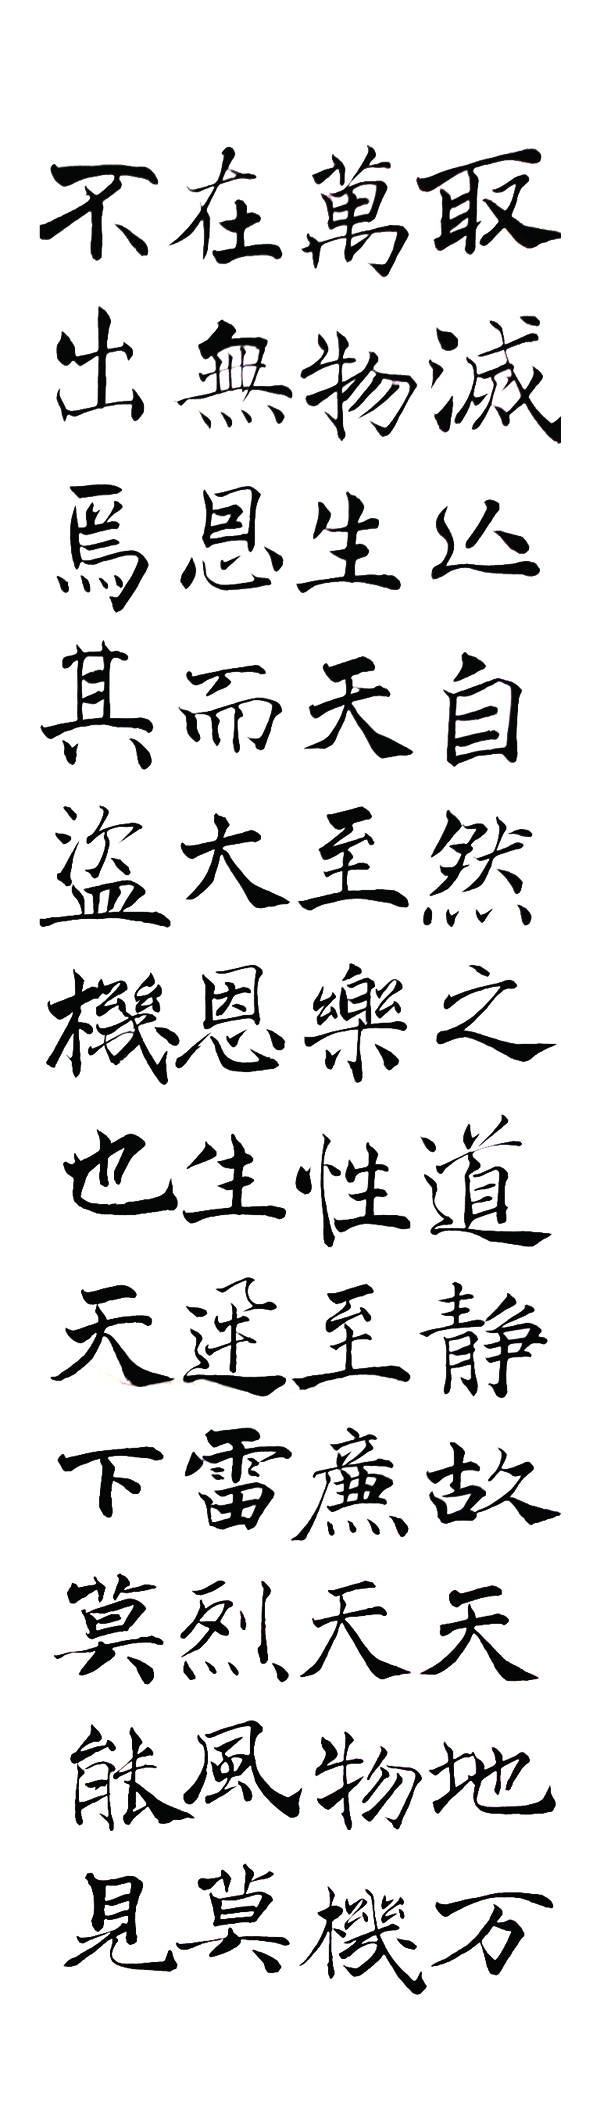 取滅亾自然之道静故天地万
萬物生天至樂性至廉天物機
在無恩而大恩生迅雷烈風莫
不出焉其盜機也天下莫能見